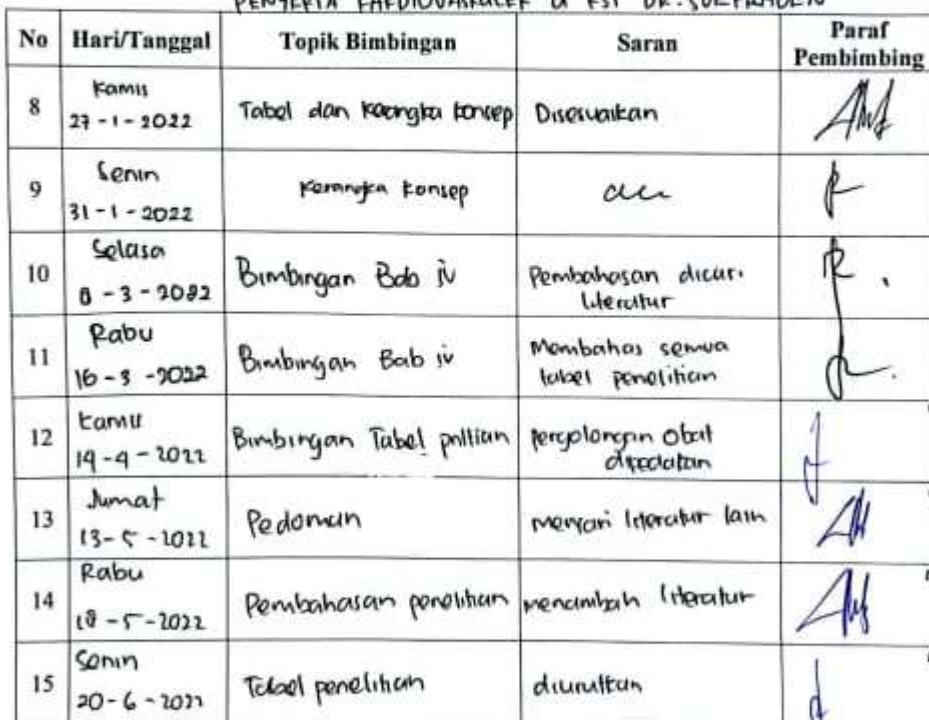 PENYERTA KARDIOVASKULER di RST DR. SOEPRAOEN
No Hari/Tanggal Topik Bimbingan Saran Paraf Pembimbing
8 Kamis 27-1-2022 Tabel dan kerangka konsep Disesuaikan
9 Senin 31-1-2022 Kerangka konsep acc
10 Selasa 8-3-2022 Bimbingan Bab iv Pembahasan dicari literatur
11 Rabu 16-3-2022 Bimbingan Bab iv Membahas semua tabel penelitian
12 Kamis 14-4-2022 Bimbingan Tabel pnltian pergolongan obat
13 Jumat 13-5-2022 Pedoman mencari literatur lain
14 Rabu 18-5-2022 Pembahasan penelitian menambah literatur
15 Senin 20-6-2022 Tabel penelitian diurutkan